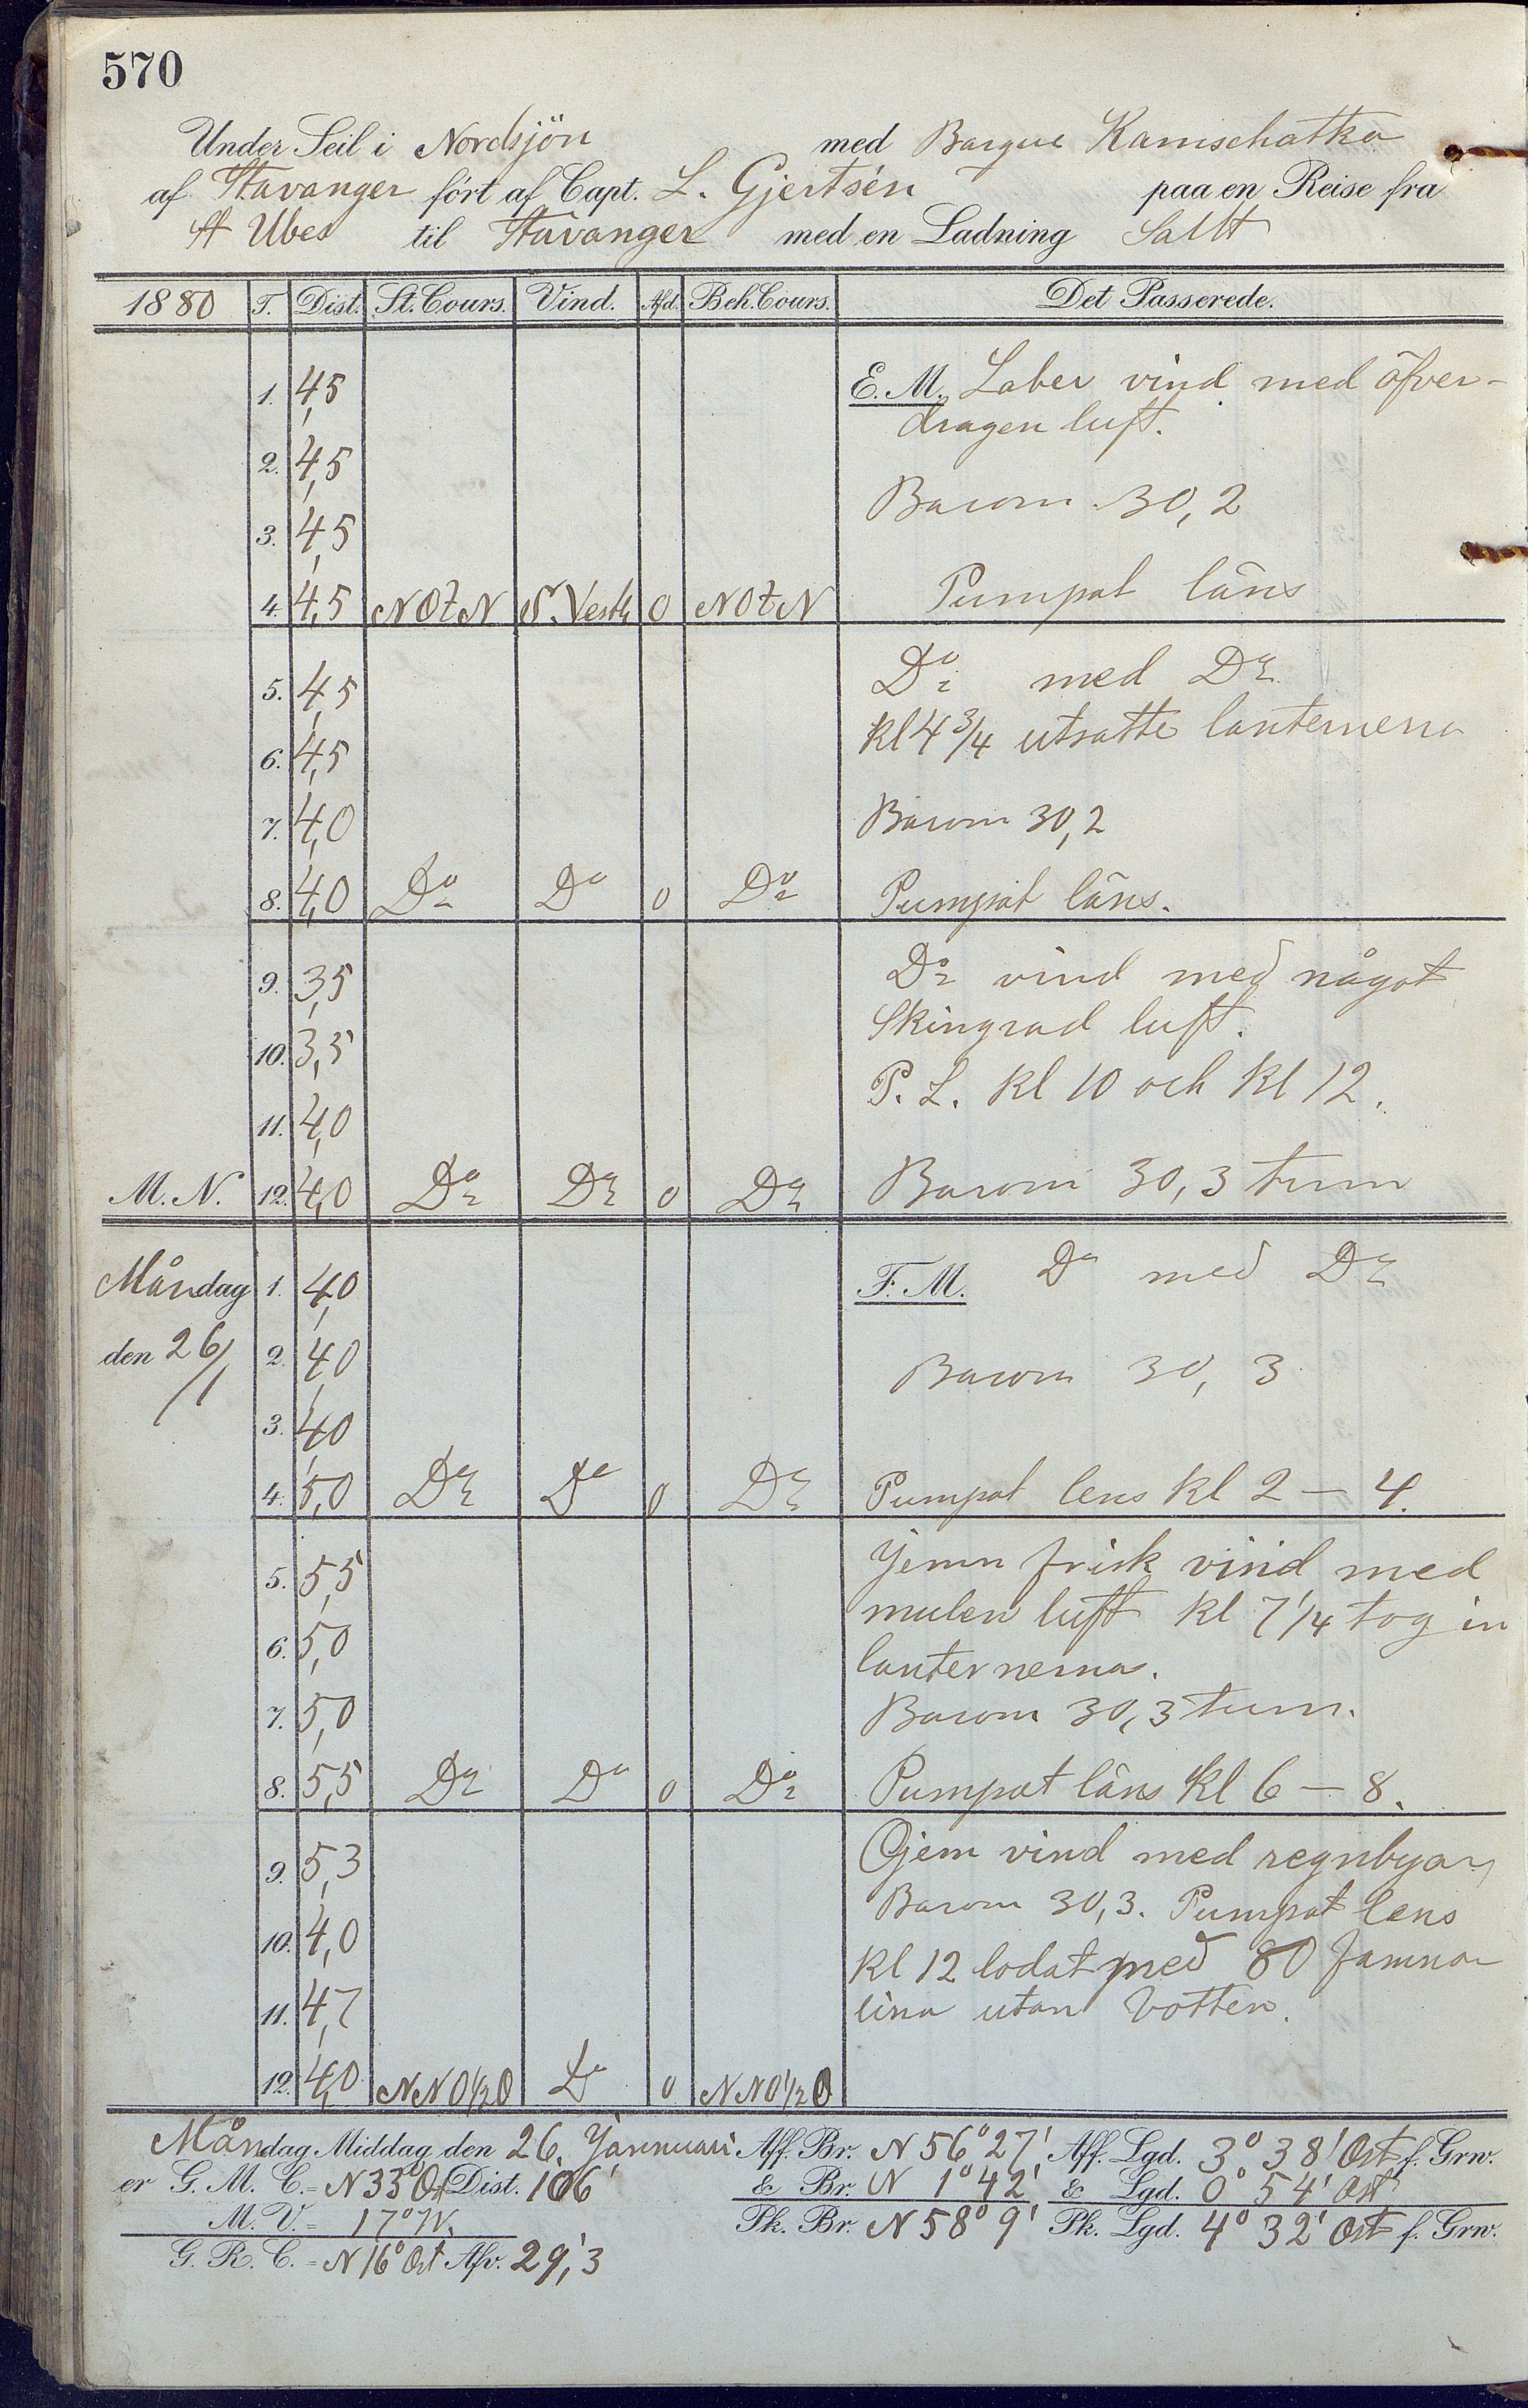 570
Under Seil i Nordsjön med Barque Kamschatka
af Stavanger ført af Capt. L. Gjertsén paa en Reise fra
St Ubes til Stavanger med en Ladning Sallt
1880 T. Dist. St. Cours. Vind. Afd. Beh. Cours. Det Passerede.
1. 4,5 E. M. Laber vind med öfver-
dragen luft.
2. 4,5
Barom 30,2
3. 4,5
4. 4,5 NOtN S. Vestl 0 NOtN Pumpat läns
5. 4,5 Do med Do
6. 4,5 kl 4 3/4 utsatte lanternerna
7. 4,0 Barom 30,2
8. 4,0 Do Do 0 Do Pumpat läns.
9. 3,5 Do vind med något
skingrad luft.
10. 3,5
P. L. kl 10 och kl 12.
11. 4,0
M. N. 12. 4,0 Do Do 0 Do Barom 30,3 tum
Måndag 1. 4,0 F. M. Do med Do
den 26/1 2. 4,0 Barom 30,3
3. 4,0
4. 5,0 Do Do 0 Do Pumpat lens kl 2 — 4.
5. 5,5 Jemn frisk vind med
mulen luft kl 7 1/4 tog in
6. 5,0 lanternerna.
7. 5,0 Barom 30,3 tum.
8. 5,5 Do Do 0 Do Pumpat läns kl 6 — 8.
9. 5,3 Ojem vind med regnbyar
Barom 30,3. Pumpat lens
10. 4,0
kl 12 lodat med 80 famnar
11. 4,7 lina utan botten.
12. 4,0 NNO1/2O Do 0 NNO1/2O
Måndag Middag den 26. Jannuari Aff. Br. N 56° 27' Aff. Lgd. 3° 38' Ost f. Grw.
er G. M. C. = N 33° Ost Dist. 106' & Br. N 1° 42' & Lgd. 0° 54' Ost
M. V. = 17° W. Pk. Br. N 58° 9' Pk. Lgd. 4° 32' Ost f. Grw.
G. R. C. = N 16° Ost Afv. 29,'3